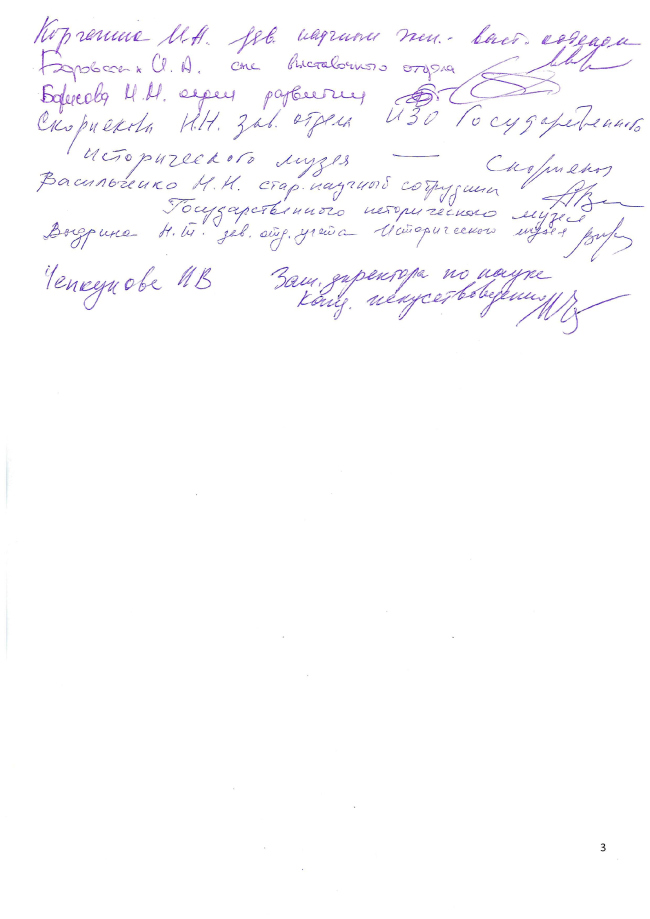 Корганина М.А. зав. научным эксп.- выст. отделом
И. А. спе выставочного отдела
Борисова И.М. отдел развития
Скорнякова Н.Н. зав. отдела ИЗО Государственного
исторического музея — Скорнякова
Васильченко М.Н. стар. научный сотрудник
Государственного исторического музея
Выдрина Н.Т. зав. отд. учета Исторического музея
Чепкунова ИВ Зам. директора по науке
Канд. искусствоведения
3